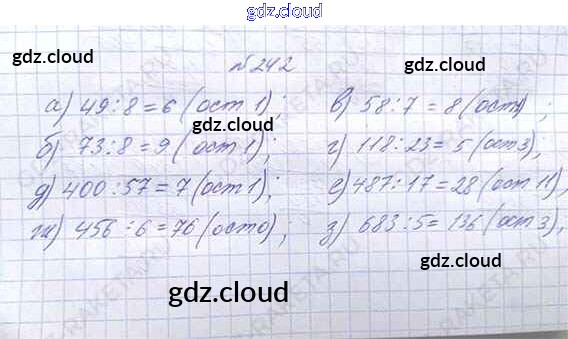 gdz.cloud
gdz.cloud
gdz.cloud
№242
а) 49:8=6 (ост 1); в) 58:7=8 (ост );
gdz.cloud
б) 73:8=9 (ост 1); г) 118:23=5 (ост 3),
д) 400:57=7 (ост 1); е) 487:17=28 (ост 11),
ж) 456:6=76 (ост 0); з) 683:5=136 (ост 3),
gdz.cloud
gdz.cloud
gdz.cloud